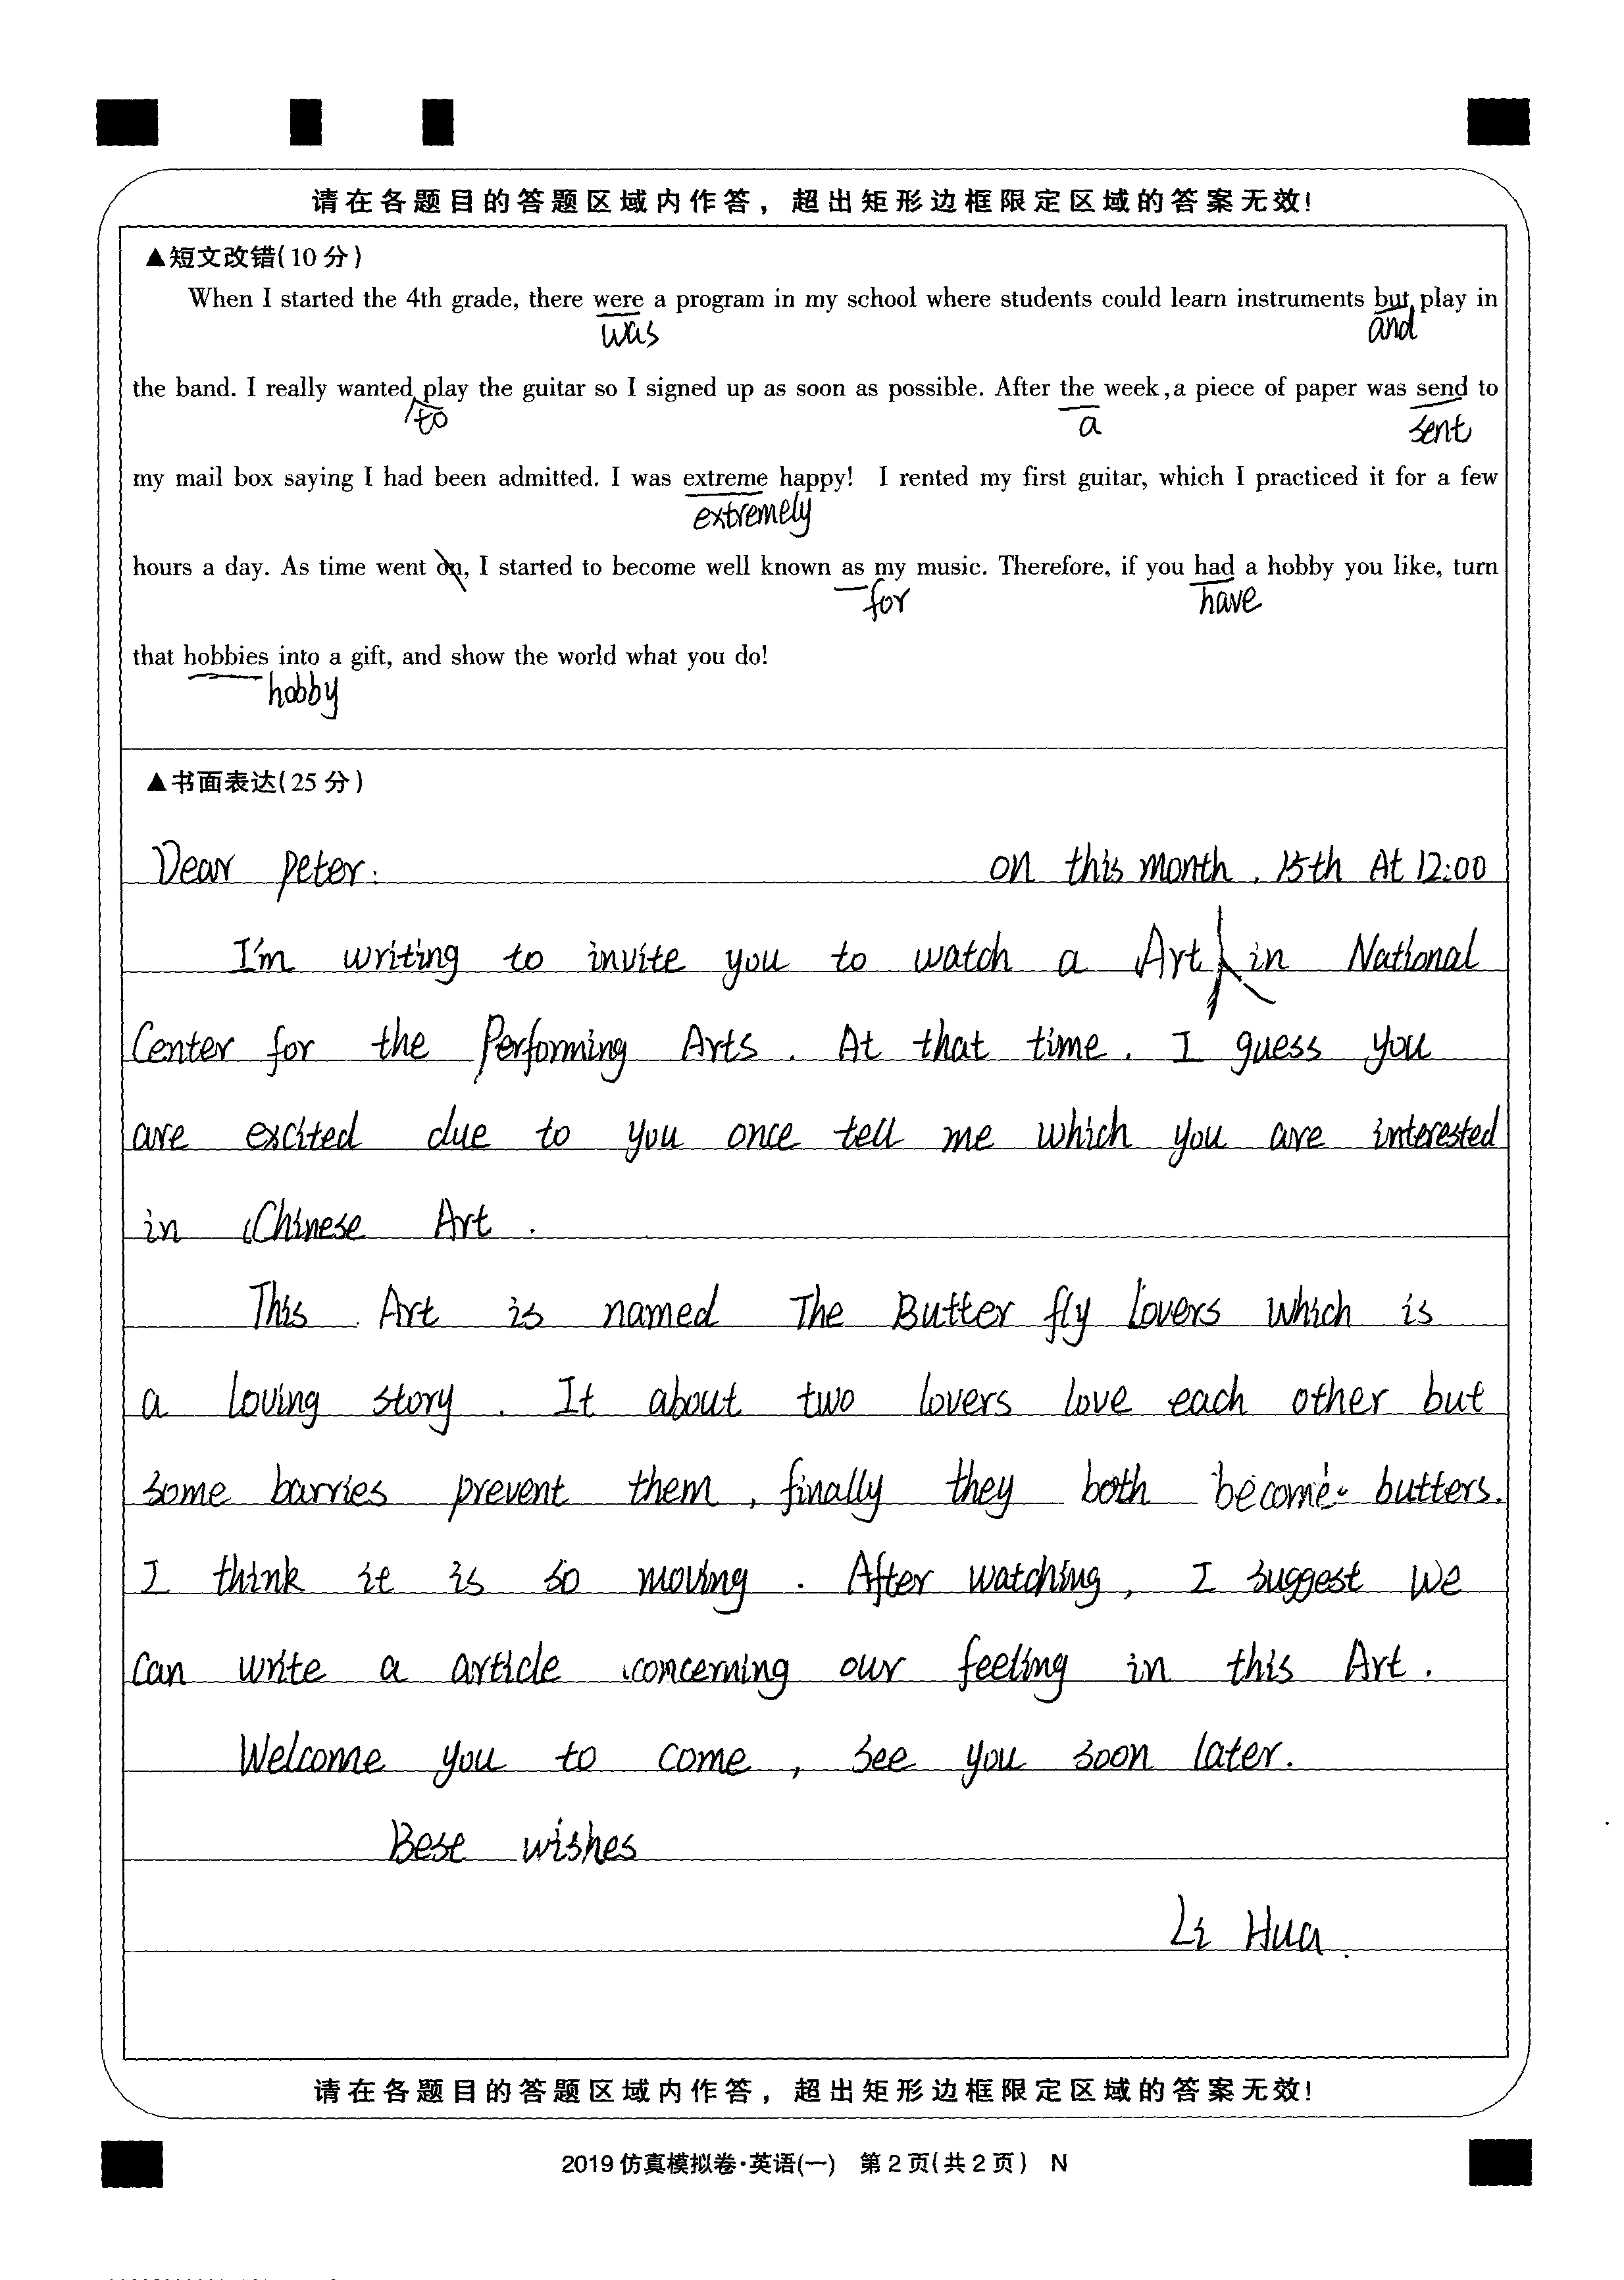 请在各题目的答题区域内作答，超出矩形边框限定区域的答案无效!
▲短文改错(10分)
When I started the 4th grade, there were a program in my school where students could learn instruments but play in
was and
the band. I really wanted play the guitar so I signed up as soon as possible. After the week,a piece of paper was send to
to a sent
my mail box saying I had been admitted. I was extreme happy! I rented my first guitar, which I practiced it for a few
extremely
hours a day. As time went on, I started to become well known as my music. Therefore, if you had a hobby you like, turn
for have
that hobbies into a gift, and show the world what you do!
hobby
▲书面表达(25分)
Dear Peter: on this month. 15th At 12:00
I'm writing to invite you to watch a Art in National
Center for the Performing Arts. At that time. I guess you
are excited due to you once tell me which you are interested
in Chinese Art.
This Art is named The Butter fly Lovers which is
a loving story. It about two lovers love each other but
some barries prevent them, finally they both become butters.
I think it is so moving. After watching, I suggest we
can write a article concerning our feeling in this Art.
Welcome you to come, see you soon later.
Best wishes
Li Hua.
请在各题目的答题区域内作答，超出矩形边框限定区域的答案无效!
2019仿真模拟卷·英语(一) 第2页(共2页) N